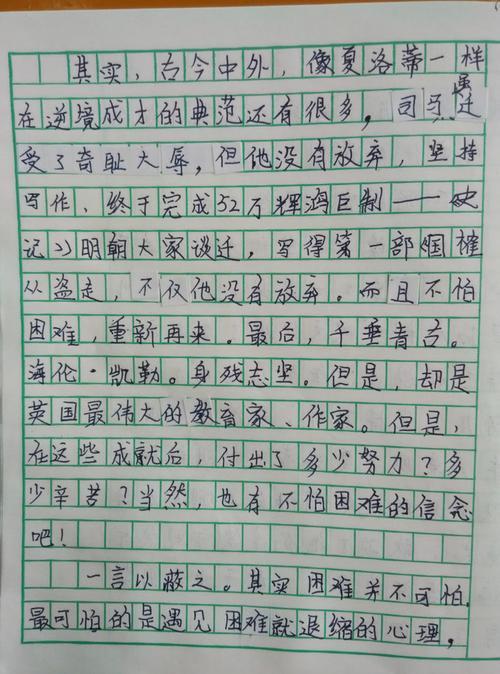 其实，古今中外，像夏洛蒂一样
在逆境成才的典范还有很多。司马迁虽
受了奇耻大辱，但他没有放弃，坚持
写作，终于完成52万辉鸿巨制——《史
记》》明朝大家谈迁，写得第一部《国榷
从盗走，不仅他没有放弃。而且不怕
困难，重新再来。最后，千垂青古。
海伦·凯勒。身残志坚。但是，却是
英国最伟大的教育家、作家。但是，
在这些成就后，付出了多少努力？多
少辛苦？当然，也有不怕困难的信念
吧！
一言以蔽之。其实困难并不可怕，
最可怕的是遇见困难就退缩的心理，